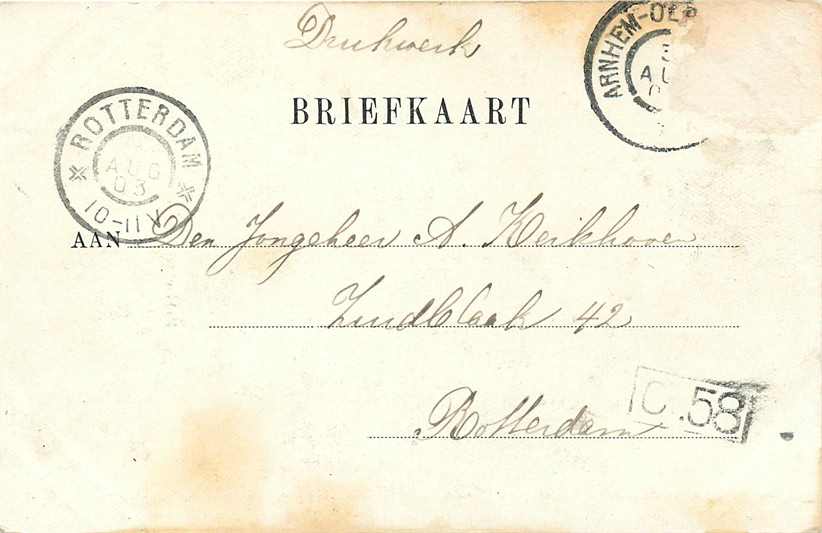 Drukwerk
ARNHEM-OEB
AU
BRIEFKAART
ROTTERDAM
AUG
03
10-11V
AAN Den Jongeheer A. Kerkhoven
Zuidblaak 42
Rotterdam
C.58